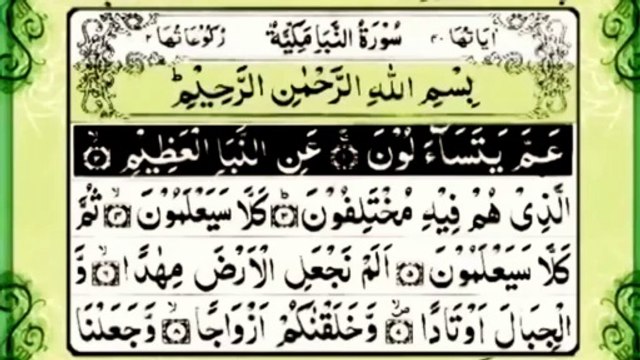 اٰيَاتُهَا ٤٠ سُوْرَةُ النَّبَاِ مَكِّيَّةٌ رُكُوْعَاتُهَا ٢
بِسْمِ اللهِ الرَّحْمٰنِ الرَّحِيْمِ
عَمَّ يَتَسَآءَلُوْنَ ۝١ عَنِ النَّبَاِ الْعَظِيْمِ ۝٢
الَّذِىْ هُمْ فِيْهِ مُخْتَلِفُوْنَ ۝٣ كَلَّا سَيَعْلَمُوْنَ ۝٤ ثُمَّ
كَلَّا سَيَعْلَمُوْنَ ۝٥ اَلَمْ نَجْعَلِ الْاَرْضَ مِهٰدًا ۝٦ وَّ
الْجِبَالَ اَوْتَادًا ۝٧ وَّخَلَقْنٰكُمْ اَزْوَاجًا ۝٨ وَّجَعَلْنَا